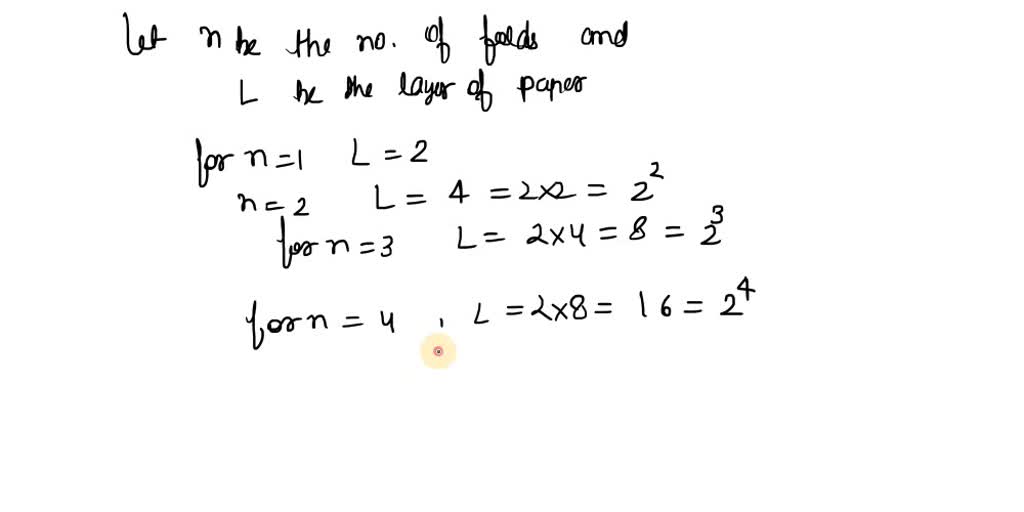 Let n be the no. of folds and
L be the layer of paper
for n = 1 L = 2
n = 2 L = 4 = 2×2 = 2²
for n = 3 L = 2×4 = 8 = 2³
for n = 4 , L = 2×8 = 16 = 2⁴